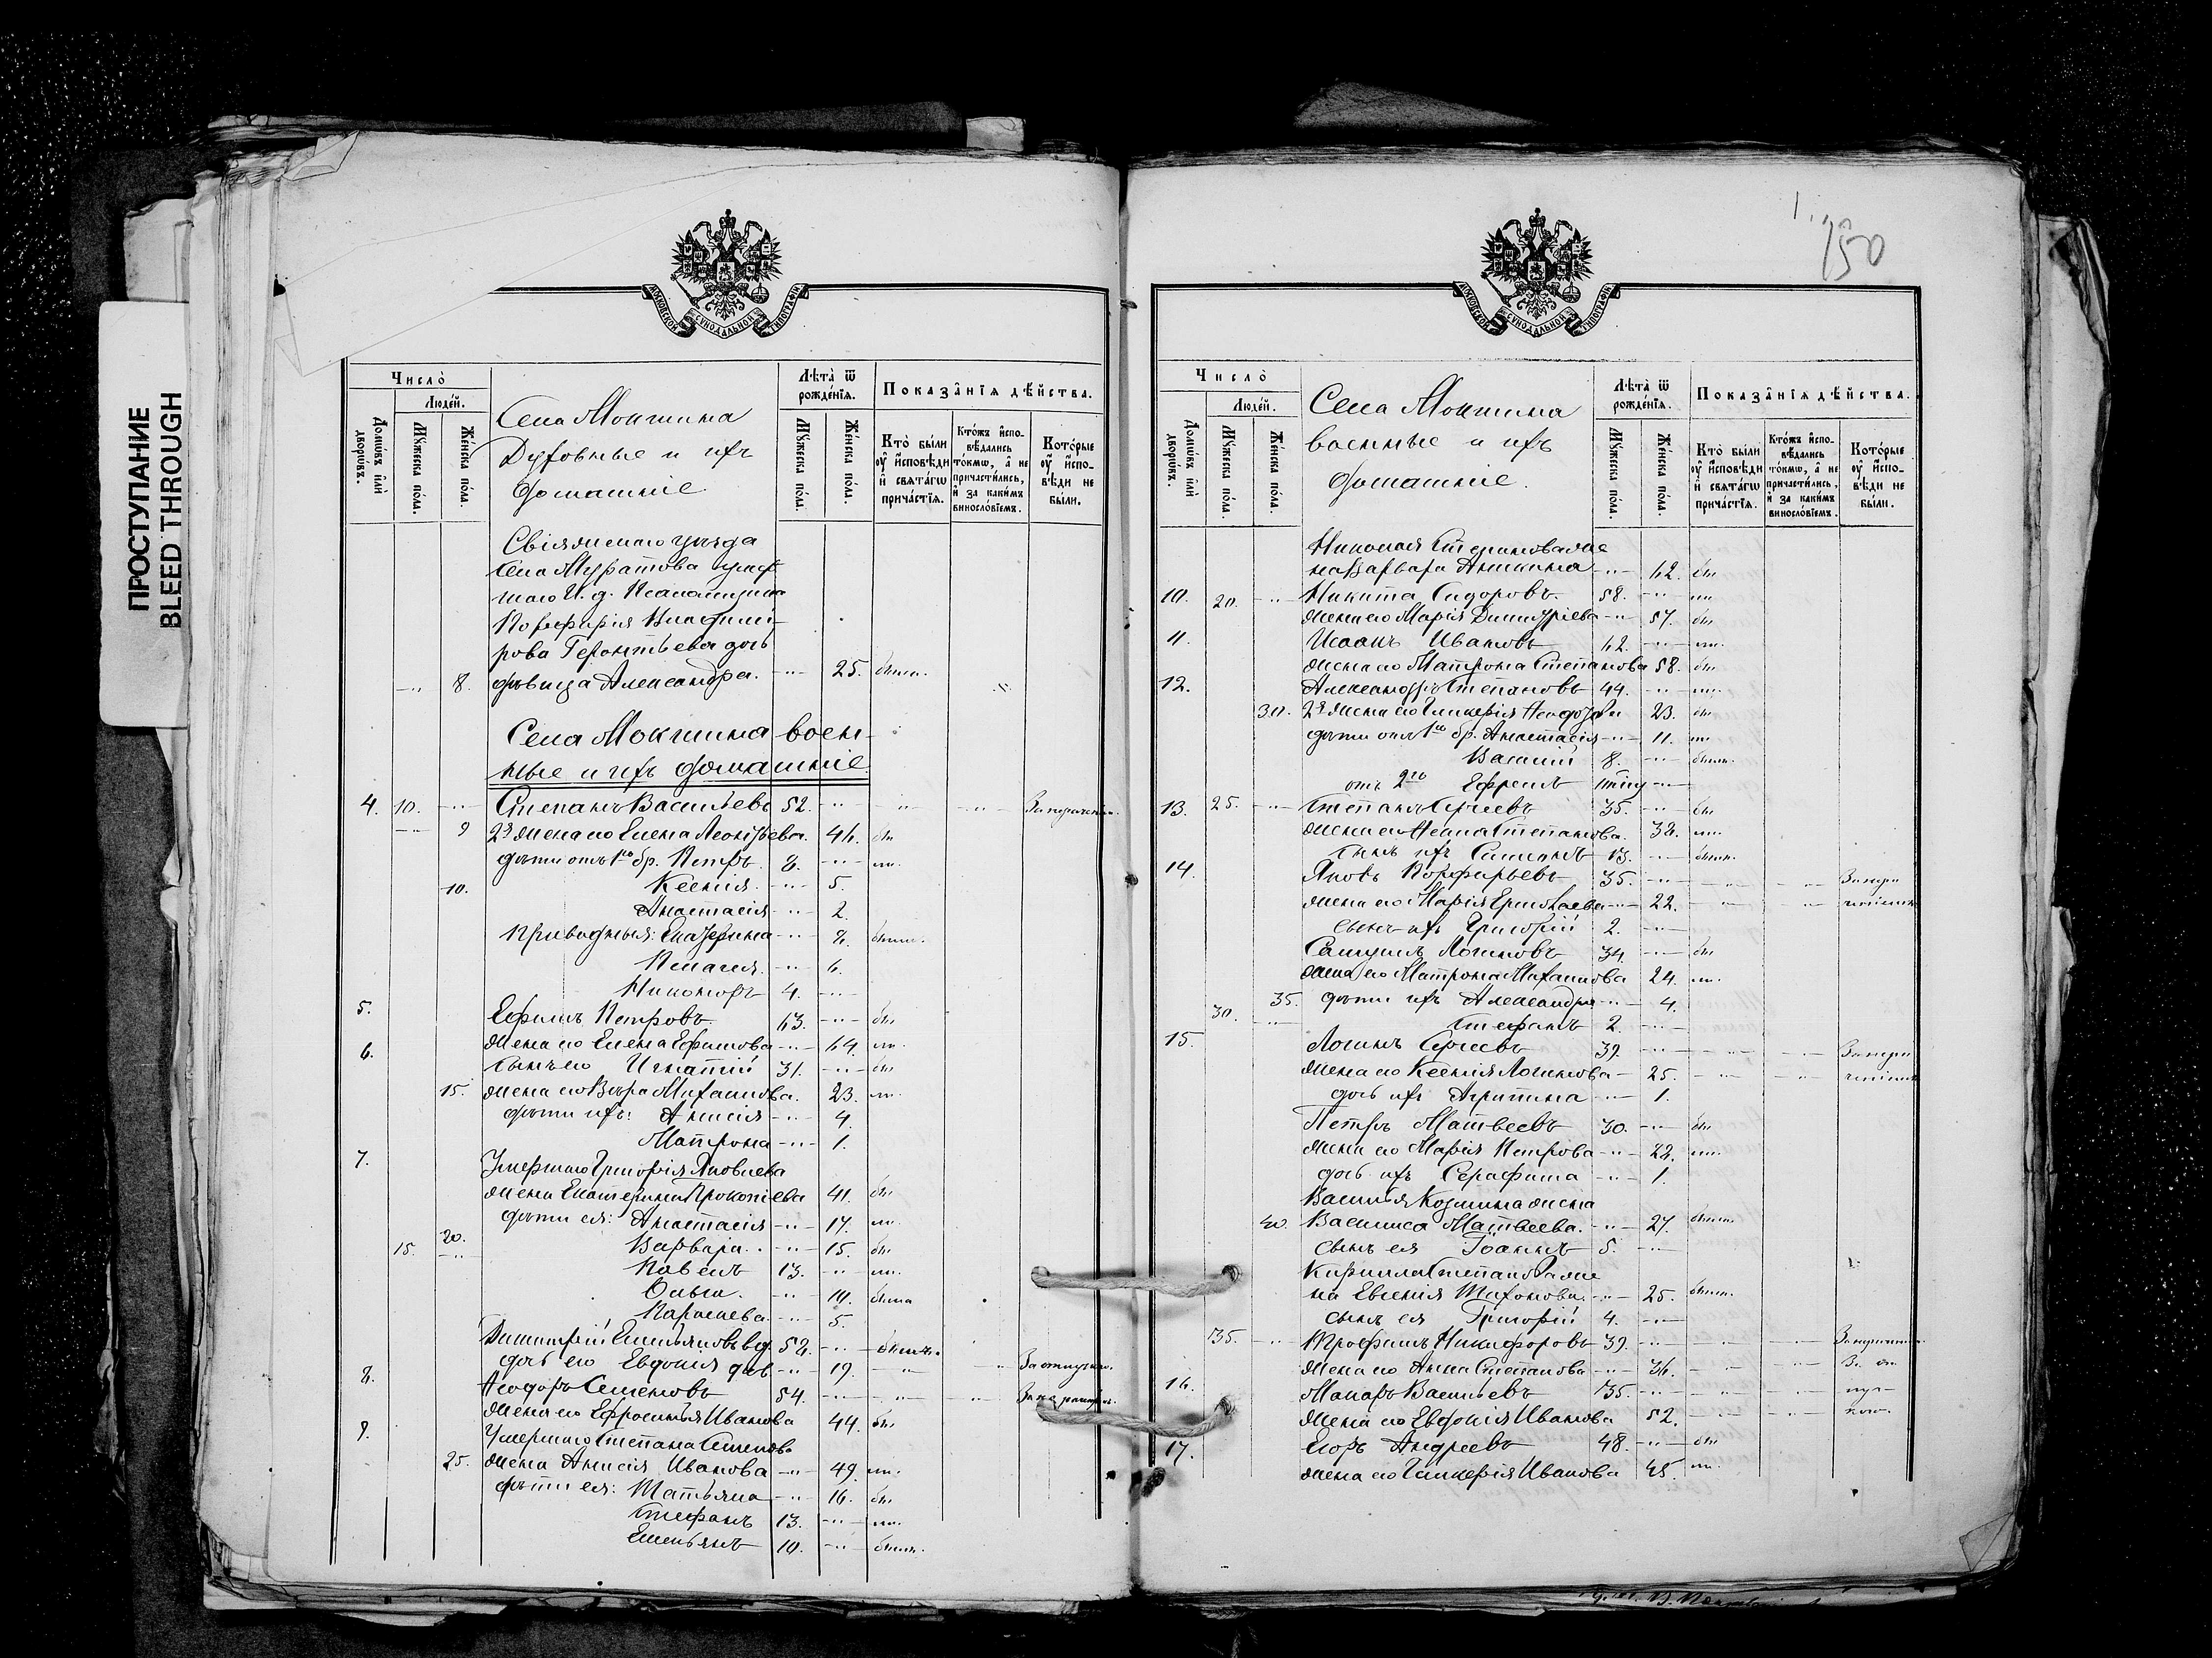 ПРОСТУПАНИЕ
BLEED THROUGH
МОСКОВСКОЙ СУНОДАЛЬНОЙ ТИПОГРАФІИ
Число̀
Людéй.
Домѡ́въ и҆лѝ дворѡ́въ.
Мꙋ́жеска по́ла.
Же́нска по́ла.
Села Мокшина
Духовные и ихъ
домашніе
Лѣта̀ ѿ рожде́нїѧ.
Мꙋ́жеска по́ла.
Же́нска по́ла.
Показа̑нїѧ дѣ́йства.
Кто̀ бы́ли ᲂу҆ и҆сповѣди и҆ свѧта́гѡ прича́стїѧ.
Кто́жъ и҆спо-вѣдались то́кмѡ, а҆ не причасти́лись, и҆ за каки́мъ винословїемъ.
Кото́рые ᲂу҆ и҆спо-вѣди не бы́ли.
Свіяжскаго уѣзда
села Муратова умер
шаго И. д. Псаломщика
Порфирія Владимі-
рова Терентьева дочь
8. дѣвица Александра. 25. была.
Села Мокшина воен-
ные и ихъ домашніе
4. 10. Степанъ Васильевъ 52.
9 2я жена его Елена Леонтьева. 46. бы
дѣти отъ 1го бр. Петръ 8. ли.
10. Ксенія. 5.
Анастасія 2.
Приводныя: Екатерина 8.
Пелагея. 6.
Никоноръ 4.
5. Ефимъ Петровъ 63. бы
жена его Елена Ефимова 64. ли.
6. сынъ его Игнатій 31. бы
15. жена его Вѣра Михаилова. 23. ли.
дѣти ихъ: Анисія 4.
Матрона 1.
7. Умершаго Григорія Яковлева
жена Екатерина Прокопіева 41. бы
дѣти ея: Анастасія 17. ли.
20. Варвара. 15. бы
15. Павелъ 13. ли.
Ольга. 10. была
Параскева 5.
Димитрій Емельяновъ вд. 52.
дочь его Евдокія дѣв 19.
8. Ѳеодоръ Семеновъ 54.
жена его Ефросинія Иванова 44. бы
9. Умершаго Степана Семенова
25. жена Анисія Иванова 49. ли.
дѣти ея: Татьяна 16. бы
Стефанъ 13. ли.
Емельянъ 10.
150
МОСКОВСКОЙ СУНОДАЛЬНОЙ ТИПОГРАФІИ
Число̀
Людéй.
Домѡ́въ и҆лѝ дворѡ́въ.
Мꙋ́жеска по́ла.
Же́нска по́ла.
Села Мокшина
военные и ихъ
домашніе.
Лѣта̀ ѿ рожде́нїѧ.
Мꙋ́жеска по́ла.
Же́нска по́ла.
Показа̑нїѧ дѣ́йства.
Кто̀ бы́ли ᲂу҆ и҆сповѣди и҆ свѧта́гѡ прича́стїѧ.
Кто́жъ и҆спо-вѣдались то́кмѡ, а҆ не причасти́лись, и҆ за каки́мъ винословїемъ.
Кото́рые ᲂу҆ и҆спо-вѣди не бы́ли.
Николая
на Варвара Аникина 62. бы
10. 20. Никита Сидоровъ 58. ли
жена его Марія Димитріева 57. бы
11. Исаакъ Ивановъ 62. ли.
жена его Матрона Степанова 58. бы
12. Александръ Степановъ 44. ли.
30. 2я жена его Гликерія 23. бы
дѣти отъ 1го бр. Анастасія 11. ли
Василій 8.
отъ 2го Ефремъ
13. 25. Степанъ Сергеевъ 35. бы
жена его Степанова. 32. ли.
сынъ ихъ 13.
14. Яковъ Порфирьевъ 35.
жена его Марія Ермолаева 22.
сынъ ихъ Григорій 2.
Самуилъ Логиновъ 34. бы
жена его Матрона Михаилова 24. ли.
35. дѣти ихъ Александра 4.
30. Стефанъ 2.
15. Логинъ Сергеевъ 39.
жена его Ксенія Логинова 25.
дочь ихъ Агрипина 1.
Петръ Матвеевъ 30. бы
жена его Марія Петрова 22. ли.
дочь ихъ Серафима 1.
Василья Козмина жена
40. Василиса Матвеева. 27.
сынъ ея Іоаннъ 5.
Кирилла Степанова же
на Евгенія Тихонова. 25.
сынъ ея Григорій 4.
35. Трофимъ Никифоровъ 39.
жена его Анна Степанова 36.
16. Макаръ Васильевъ 35.
жена его Евдокія Иванова 52.
17. Егоръ Андреевъ 48. бы
жена его Гликерія Иванова 45. ли.